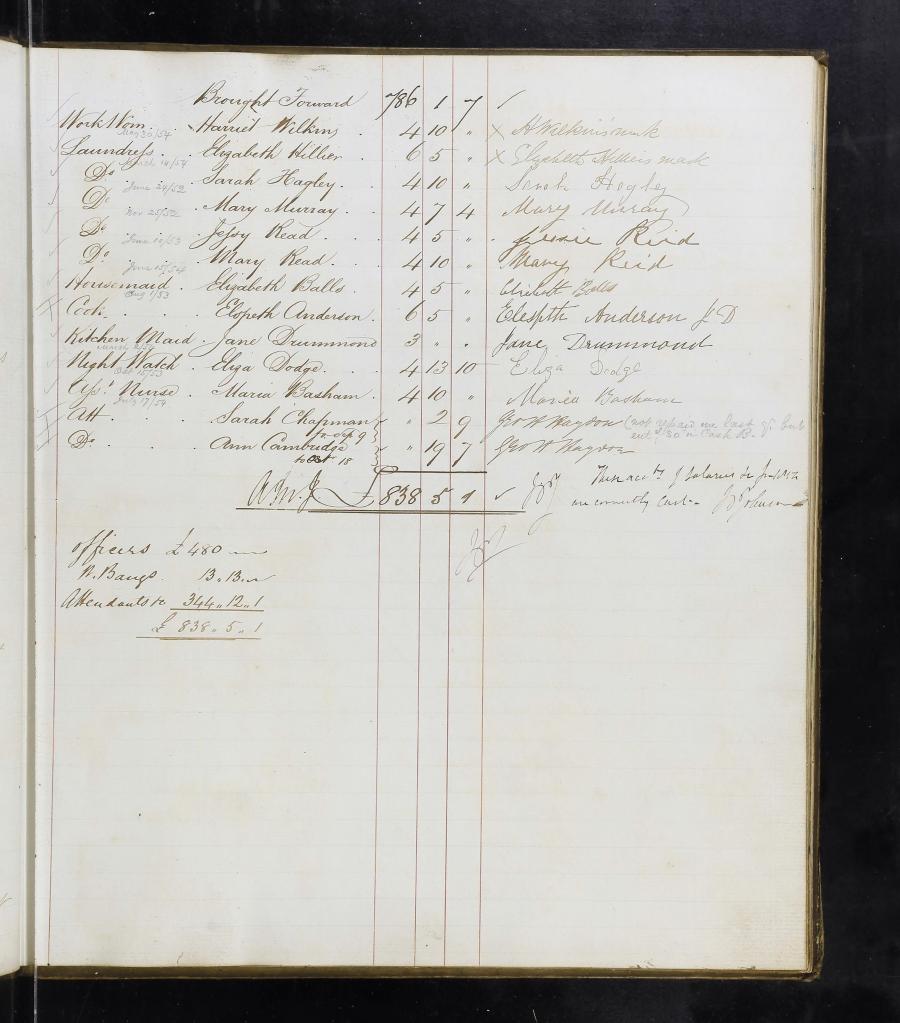 Brought Forward 786 1 7
Work Wom. Harriet Wilkins . 4 10 " X H Wilkins's mark
May 30/54
Laundress . Elizabeth Hillier . 6 5 " X Elizabeth Hilliers mark
March 14/54
Do . . Sarah Hagley . . 4 10 " Sarah Hagley
June 24/52
Do . Mary Murray . . 4 7 4 Mary Murray
Nov 25/52
Do . . Jessy Read . . 4 5 " Jessie Reid
June 10/53
Do . . Mary Read . . 4 10 " Mary Reid
June 15/54
Housemaid . Elizabeth Balls . 4 5 " Elizabeth Balls
Aug 1/53
Cook . . . Elspeth Anderson . 6 5 " Elespth Anderson
Kitchen Maid . Jane Drummond 3 " " Jane Drummond
March 2/54
Night Watch . Eliza Dodge . . . 4 13 10 Eliza Dodge
Oct 15/53
Asst Nurse . Maria Basham . 4 10 " Maria Basham
July 17/54
Att . . . Sarah Chapman " 2 9 Geo W Haydon (not repaid me last qr but
9 ent d 30 in Cash B.
Do . . . Ann Cambridge " 19 7 Geo W Haydon
to Oct 18
£ 838 5 1 These accts of Salaries &c
are correctly Cast - Johnson
officers £ 480
Baugs 13 . 13 . "
Attendants &c 344 .. 12 .. 1
£ 838 .. 5 .. 1